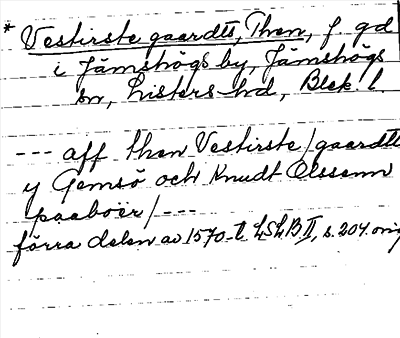 * Vestirste gaardtt, Then, f. gd
i Jämshögs by, Jämshögs
sn, Listers hd, Blek. l.
--- aff then Vestirste / gaardtt
y Gemsö och Knudt Olssenn
paaboer / ---
förra delen av 1570-t. LSLB II, s. 204. orig